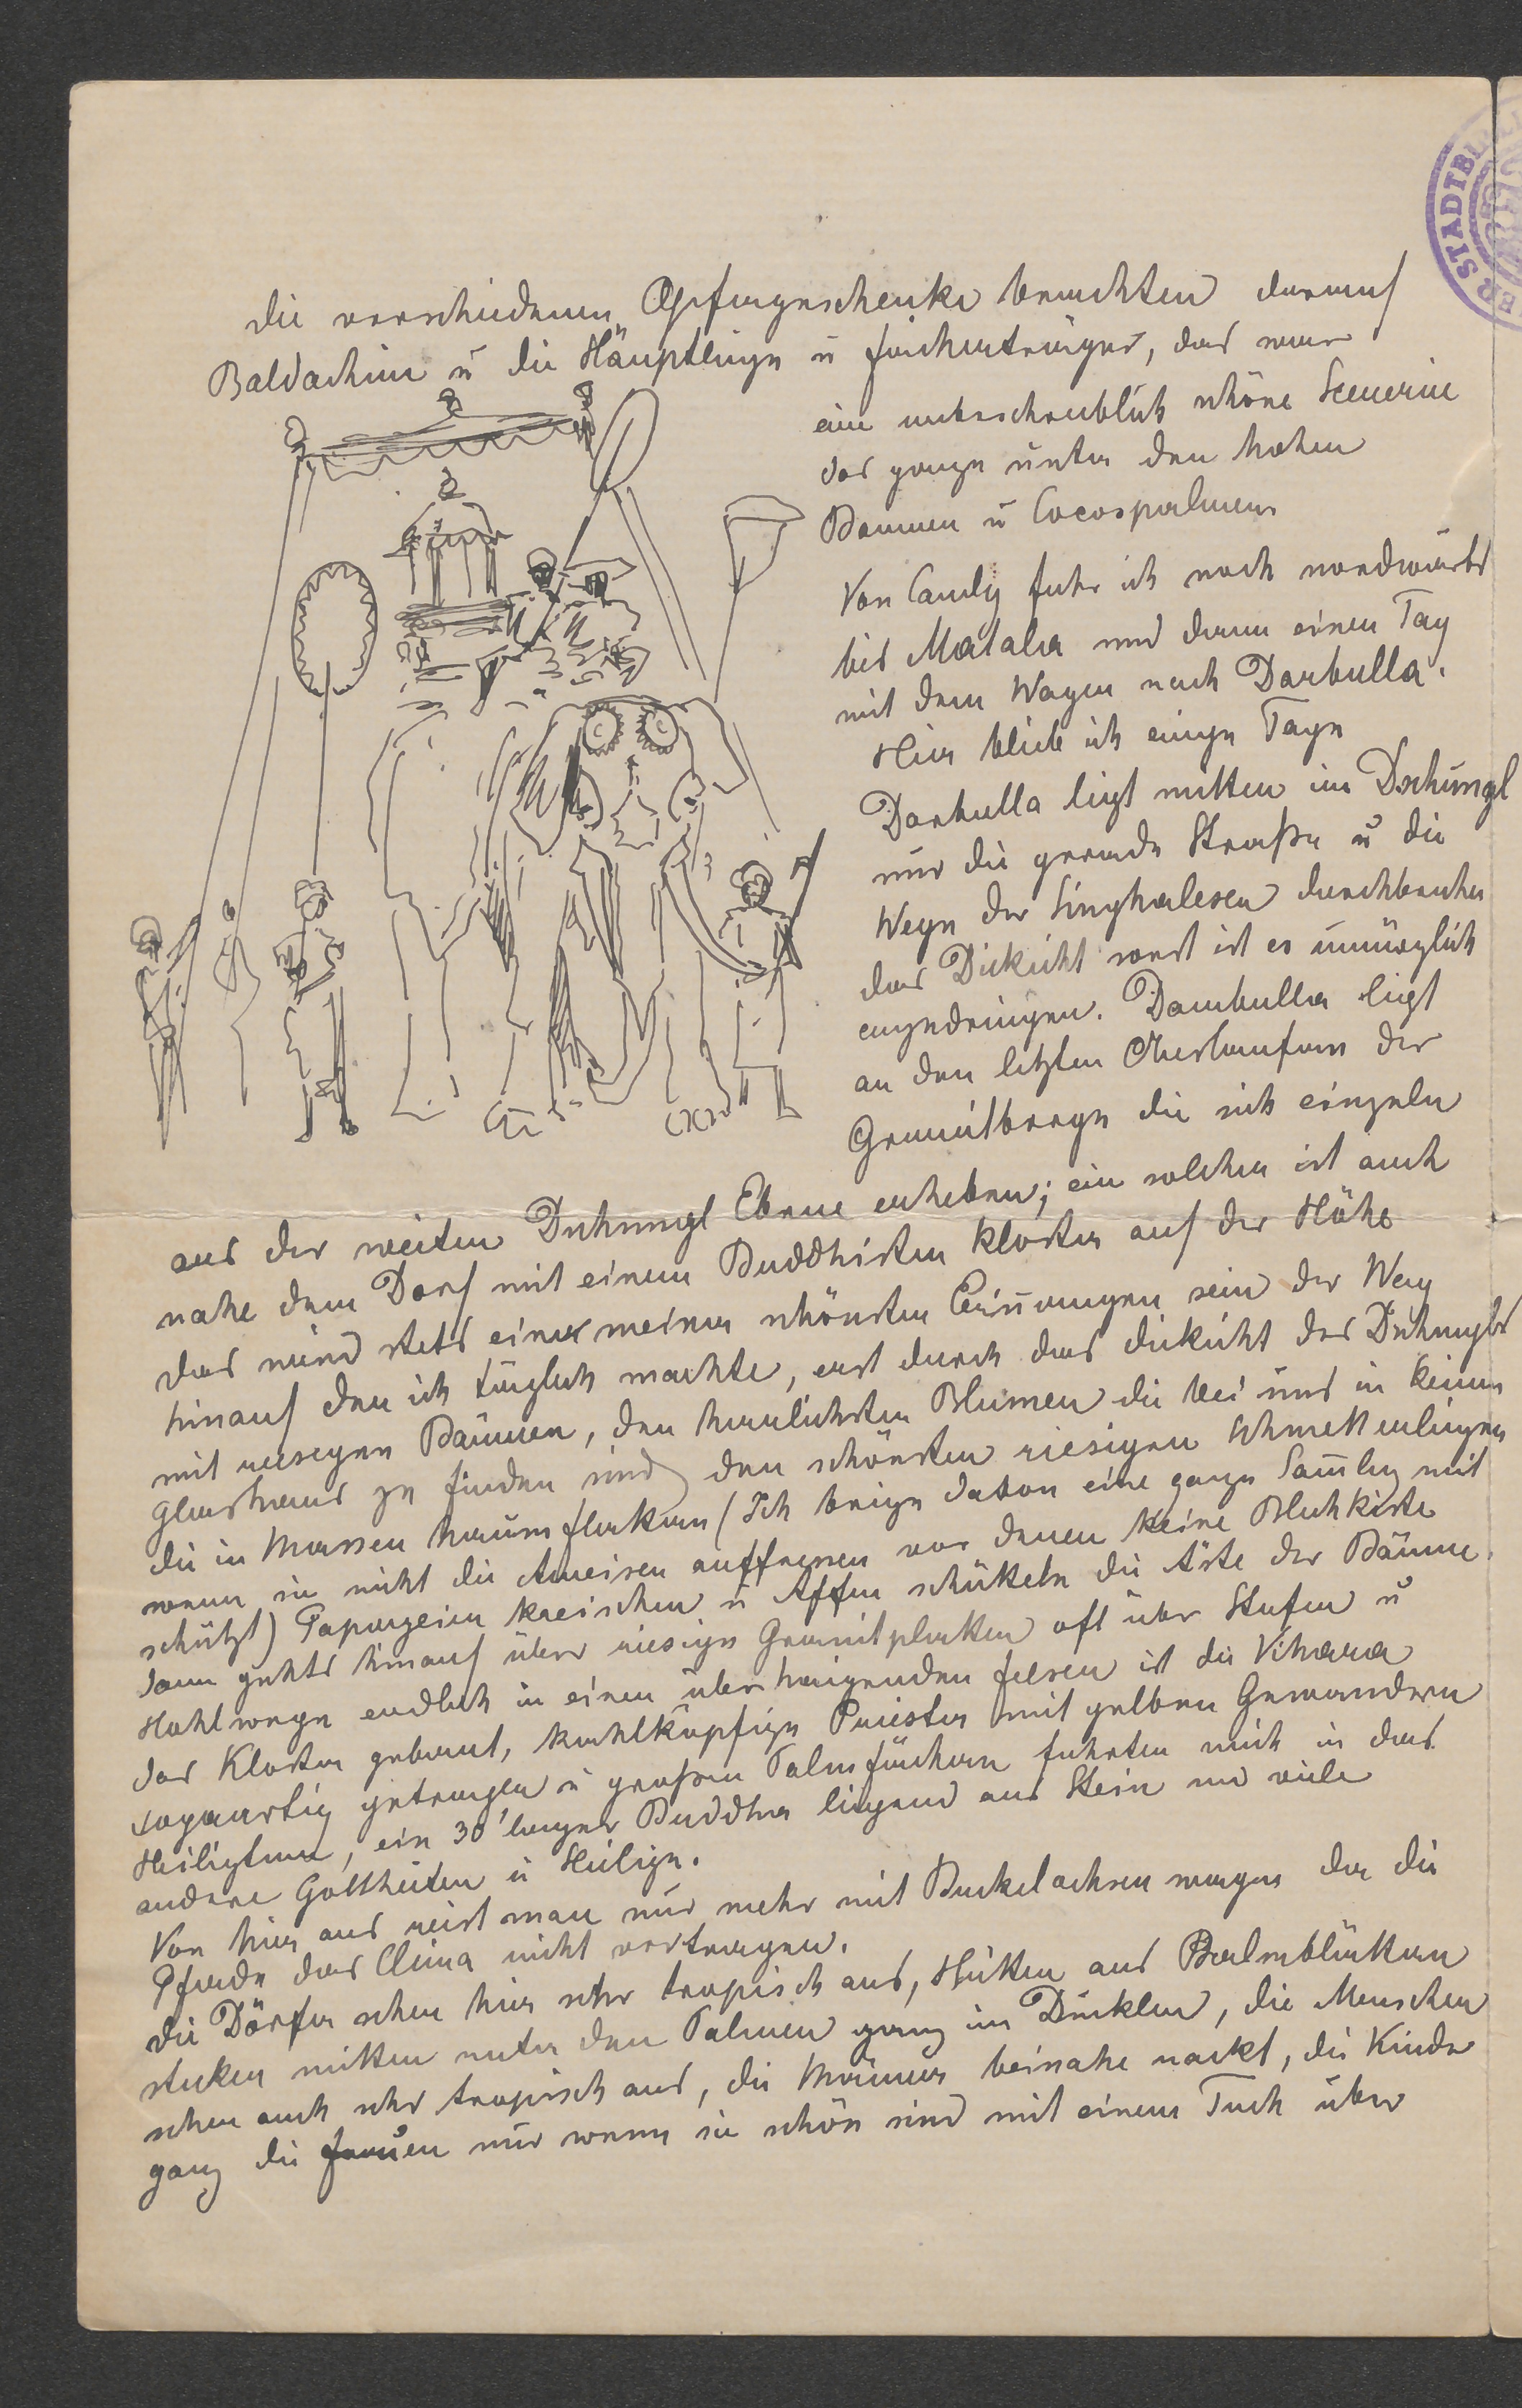 die verschiedenen Opfergeschenke brachten darauf
Baldachine ŭ die Häuptlinge ŭ Fächerträger, das war
eine unbeschreiblich schöne Scenerie
das ganze unter den hohen
Baumen ŭ Cocospalmen
Von Candy fuhr ich noch nordwärts
bis Matala und dann einen Tag
mit dem Wagen nach Dambulla.
Hier blieb ich einige Tage
Dambulla liegt mitten im Dschungl
nur die gerade Straße ŭ die
Wege der Singhalesen durchbrechen
das Dickicht sonst ist es unmöglich
einzudringen. Dambulla liegt
an den letzten Ausläufern der
Granitberge die sich einzeln
aus der weiten Dschungl Ebene erheben; ein solcher ist auch
nahe dem Dorf mit einem Buddhisten Kloster auf der Höhe
das wird stets eines meiner schönsten Erinnerungen sein der Weg
hinauf den ich täglich machte, erst durch das dickicht des Dschungls
mit riesigen Bäumen, den herrlichsten Blumen die bei uns in keinem
Glashaus zu finden sind den schönsten riesigen Schmetterlingen
die in Massen herumflattern (Ich bringe davon eine ganze Sam̄lg mit
wenn sie nicht die Ameisen auffressen vor denen keine Blechkiste
schützt) Papageien kreischen ŭ Affen schütteln die Äste der Bäume.
dann gehts hinauf über riesige Granitplatten oft über Stufen ŭ
Hohlwege endlich in einen überhängenden Felsen ist die Vihara
das Kloster gebaut, kahlköpfige Priester mit gelben Gewandern
togaartig getragen ŭ großen Palmfächern fuhrten mich in das
Heiligtum, ein 30' langer Buddha liegend aus Stein und viele
andere Gottheiten ŭ Heilige.
Von hier aus reist man nur mehr mit Buckelochsenwagen da die
Pferde das Clima nicht vertragen.
die Dörfer sehen hier sehr tropisch aus, Hütten aus Palmblättern
stecken mitten unter den Palmen ganz im Dunklen, die Menschen
sehen auch sehr tropisch aus, die Männer beinahe nackt, die Kinder
ganz die Frauen nur wenn sie schön sind mit einem Tuch über